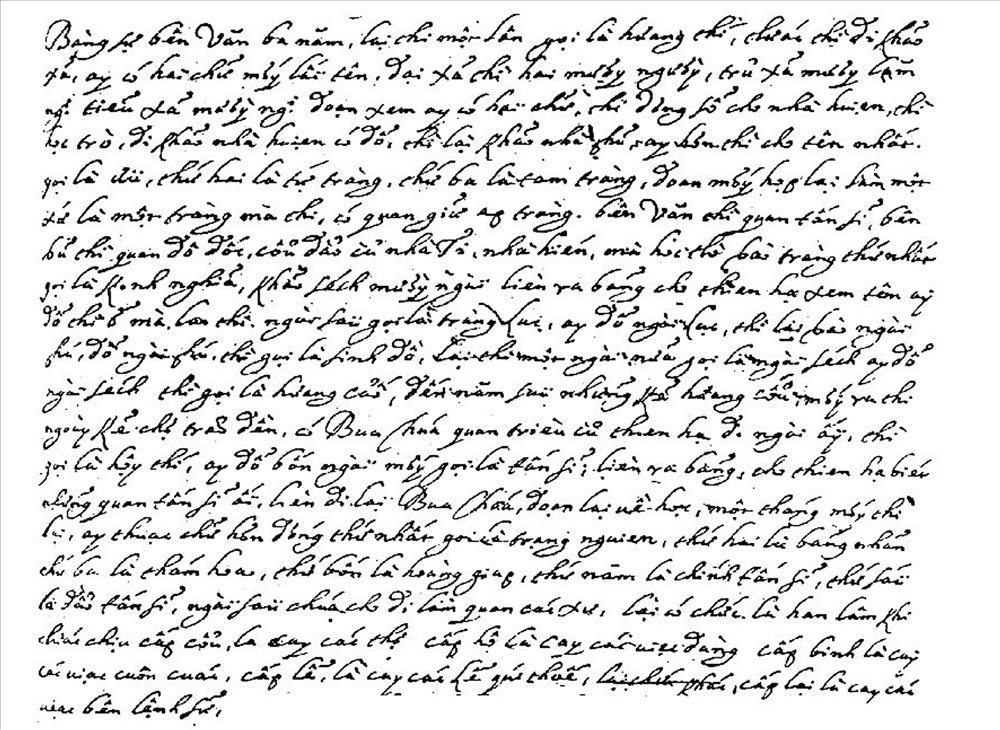 Bàng sự bên Văn ba năm, lại thi một lần gọi là hương thí, trước thì đi khảo
xã, ay có hai chữ mấy lấy tên, đại xã thì hai mươi người, trū xã mươi lăm
ng̃ tiểu xã mươi ng̃ đoạn xem ay có hai chữ, thì dâng sổ cho nhà huiẹn, thì
học trò, đi khảo nhà huiẹn có đỗ, thì lại khảo nhà phủ, ay hơn thì cho tên nhất.
gọi là thứ hai là tứ tràng, thứ ba là tam tràng, đoạn mấy họp lại làm một
xứ là một tràng mà thi, có quan giữ ap tràng. bên Văn thì quan tấn sĩ, bên
bũ thì quan đô đốc, cũ đẫ cũ nhà Ti, nhà hiến, mà học thò bào tràng thứ nhất
gọi là kinh nghĩa, khảo sách mười ngày liền ra bảng cho thien hạ xem tên ay
đỗ thì mà, lan thi. ngày sau gọi là tràng luc, ay đỗ ngày luc, thì lại bào ngày
fú, đỗ ngày fú, thì gọi là sinh đồ, lại thi một ngày nữa gọi là ngày sách ay đỗ
ngày sách thì gọi là hương cống, đến năm sau những kẻ hương cống, mấy ra thi
ngoày kẻ chợ trao đền, có Bua Chúa quan trièu cũ thien hạ đi ngày ấy, thì
gọi là hội thí, ay đỗ bốn ngày mấy gọi là tấn sĩ, liền ra bảng, cho thien hạ biết
những quan tấn sĩ ấi, liền đi lạy Bua Chúa, đoạn lại về học, một tháng mấy thi
lại, ay thuọc chữ hơn đóng thứ nhất gọi là trạng nguien, thứ hai là bảng nhãn
thứ ba là thám hoa, thứ bốn là hoàng giap, thứ năm là chính tấn sĩ, thứ sáu
là đầo tấn sĩ, ngày sau chúa cho đi làm quan các xứ, lại có chức là han lâm khi
trước chịu cấp cũ, là cay các thợ cấp hộ là cay các việc đàng cấp binh là cay
các việc cuôn cuác, cấp lễ, là cay các lễ qúi thuế, cấp lại là cay các
việc bên lệnh sử,